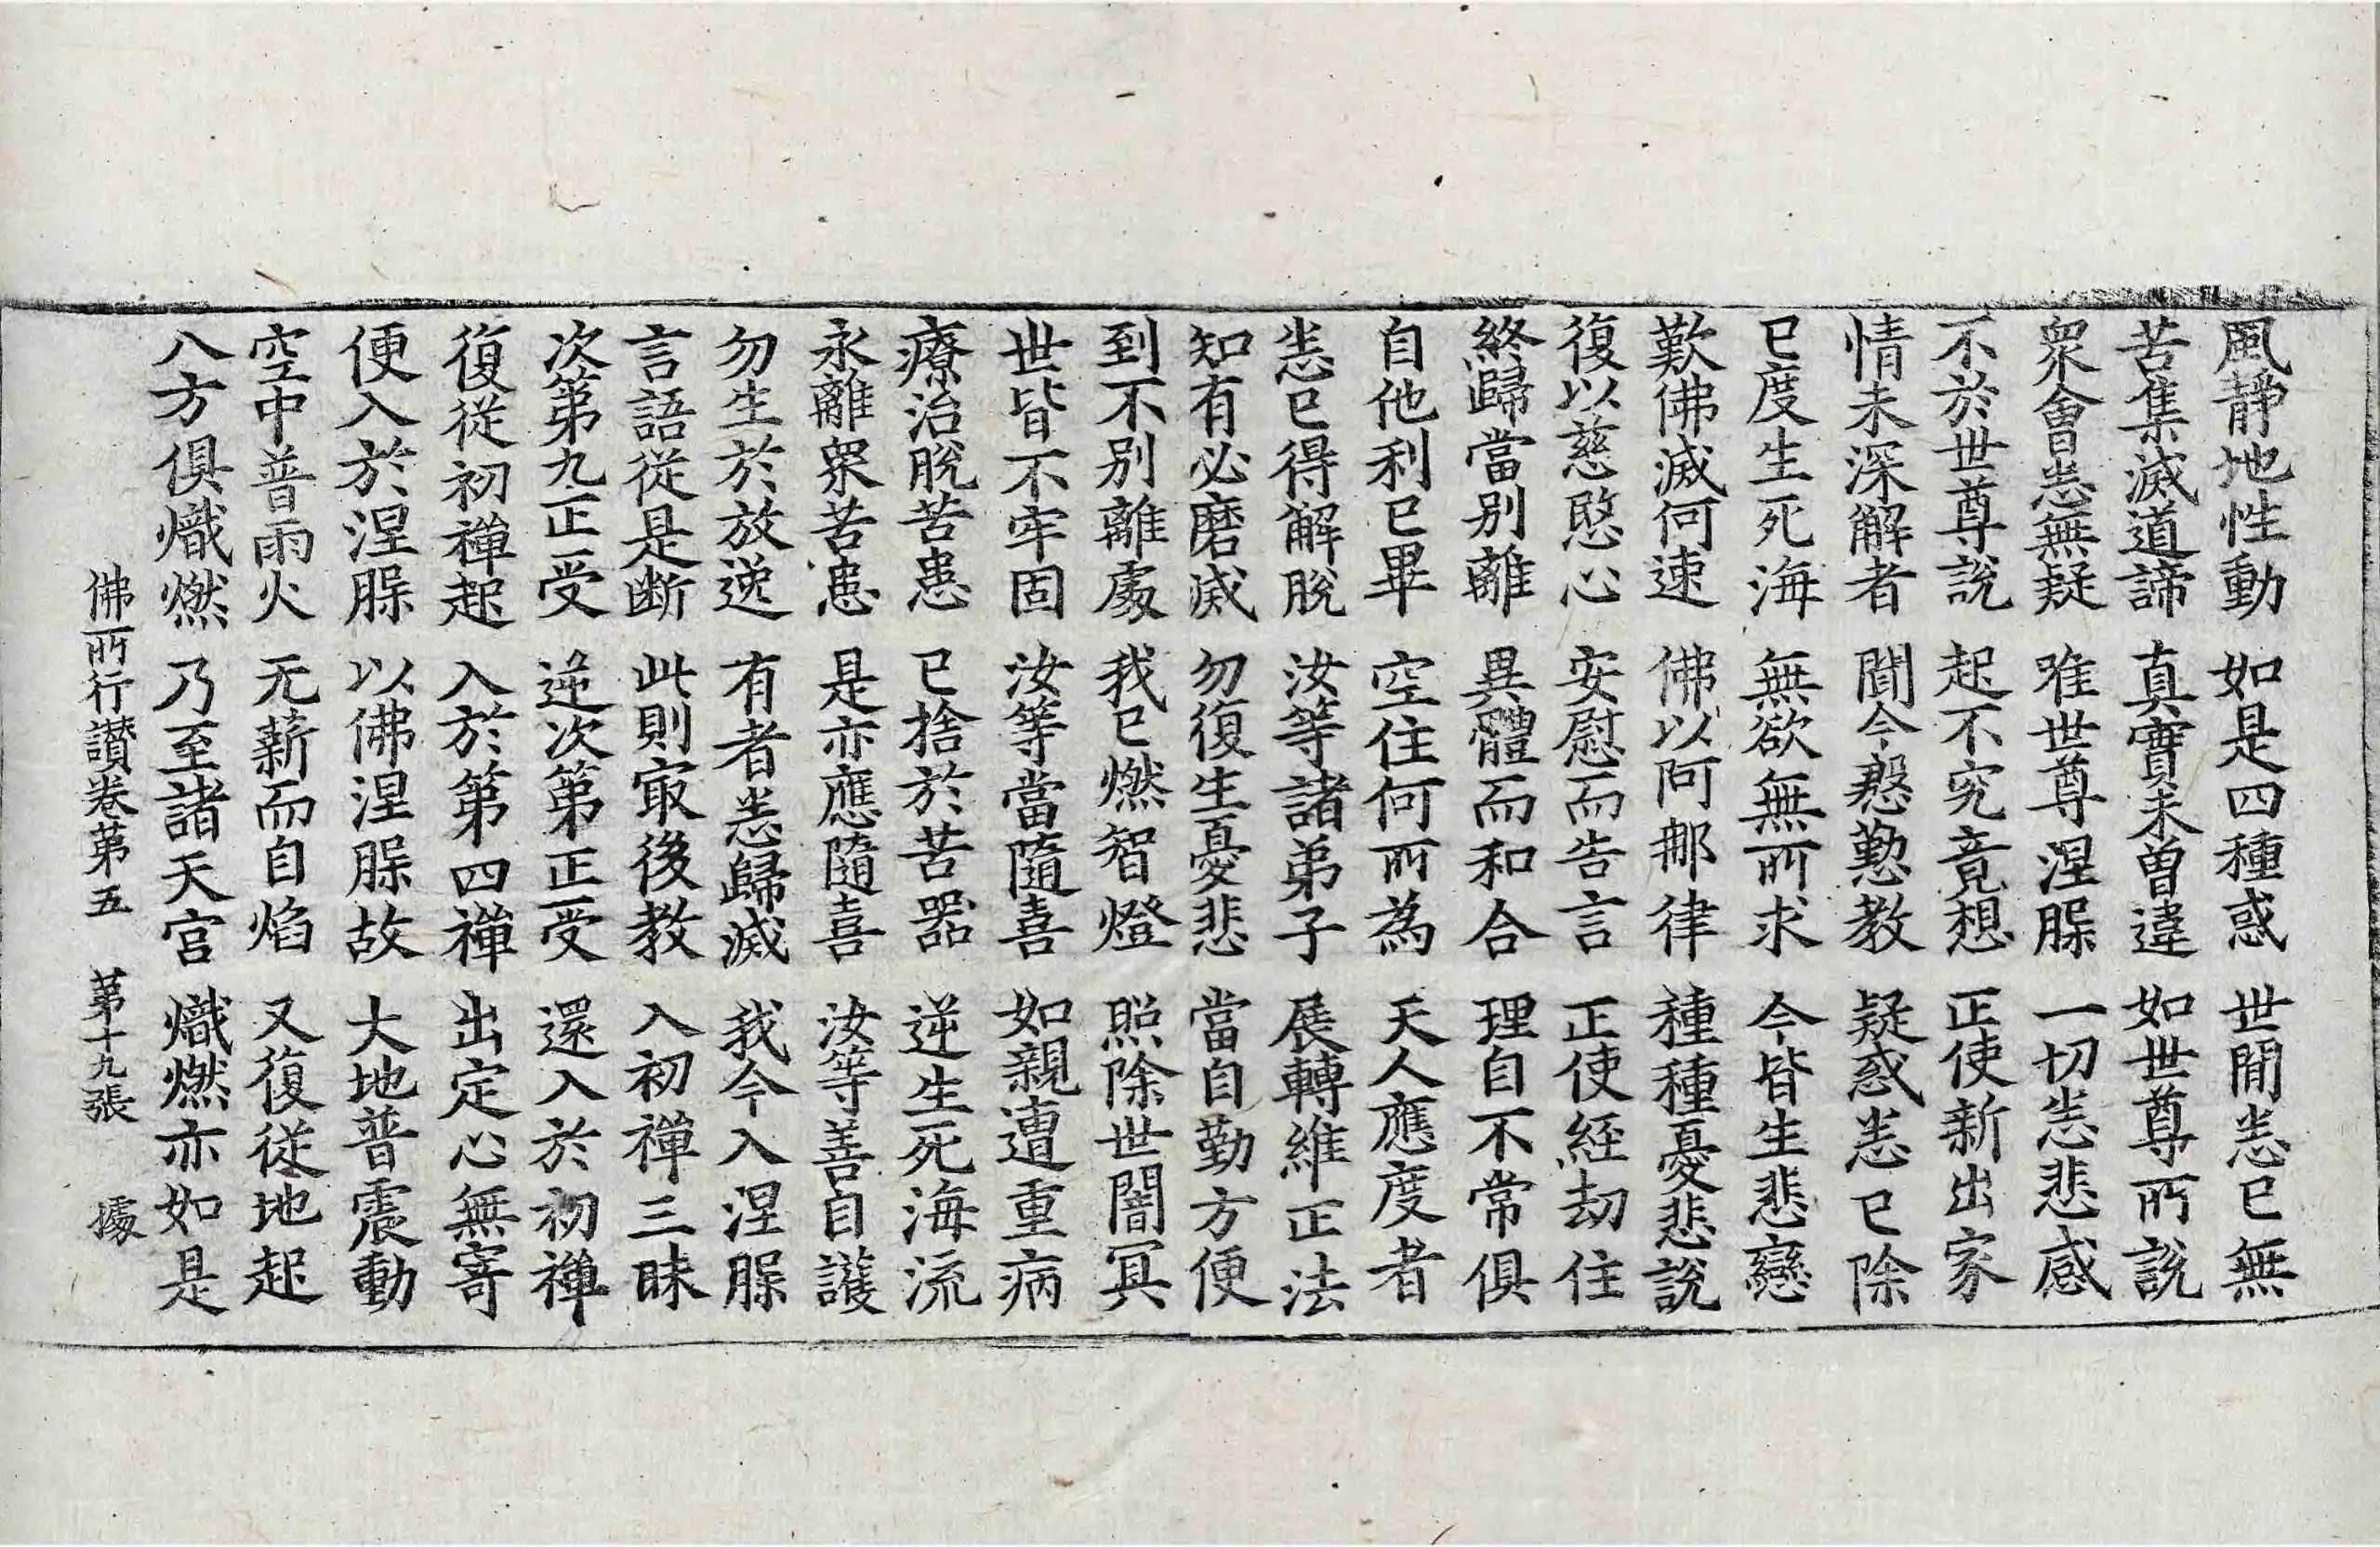 風静地性動 如是四種惑 世間悉已無
苦集滅道諦 真實未曽違 如世尊所說
衆會悉無疑 唯世尊涅𣨼 一切悉悲感
不於世尊說 起不究竟想 正使新出家
情未深解者 聞今慇懃教 疑惑悉已除
已度生死海 無欲無所求 今皆生悲戀
歎佛滅何速 佛以阿那律 種種憂悲說
復以慈愍心 安慰而告言 正使經劫住
終歸當別離 異體而和合 理自不常俱
自他利已畢 空住何所為 天人應度者
悉已得解脫 汝等諸弟子 展轉維正法
知有必磨滅 勿復生憂悲 當自勤方便
到不別離處 我已燃智燈 照除世闇冥
世皆不牢固 汝等當隨喜 如親遭重病
療治脫苦患 已捨於苦器 逆生死海流
永離衆苦患 是亦應隨喜 汝等善自護
勿生於放逸 有者悉歸滅 我今入涅𣨼
言語從是断 此則冣後教 入初禪三昧
次第九正受 逆次第正受 還入於初禪
復從初禪起 入於第四禪 出定心無寄
便入於涅𣨼 以佛涅𣨼故 大地普震動
空中普雨火 无薪而自焰 又復從地起
八方俱熾燃 乃至諸天宮 熾燃亦如是
佛所行讃卷第五 第十九張 㩀